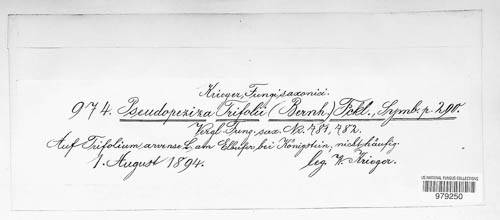 Krieger, Fungi saxonici.
974. Pseudopeziza Trifolii (Bernh.) Fckl., Symb. p. 290.
Vergl. Fung. sax. No. 481, 482.
Auf Trifolium arvense L. am Elbufer bei Königstein, nicht häufig.
1. August 1894. leg. W. Krieger.
US NATIONAL FUNGUS COLLECTIONS
979250